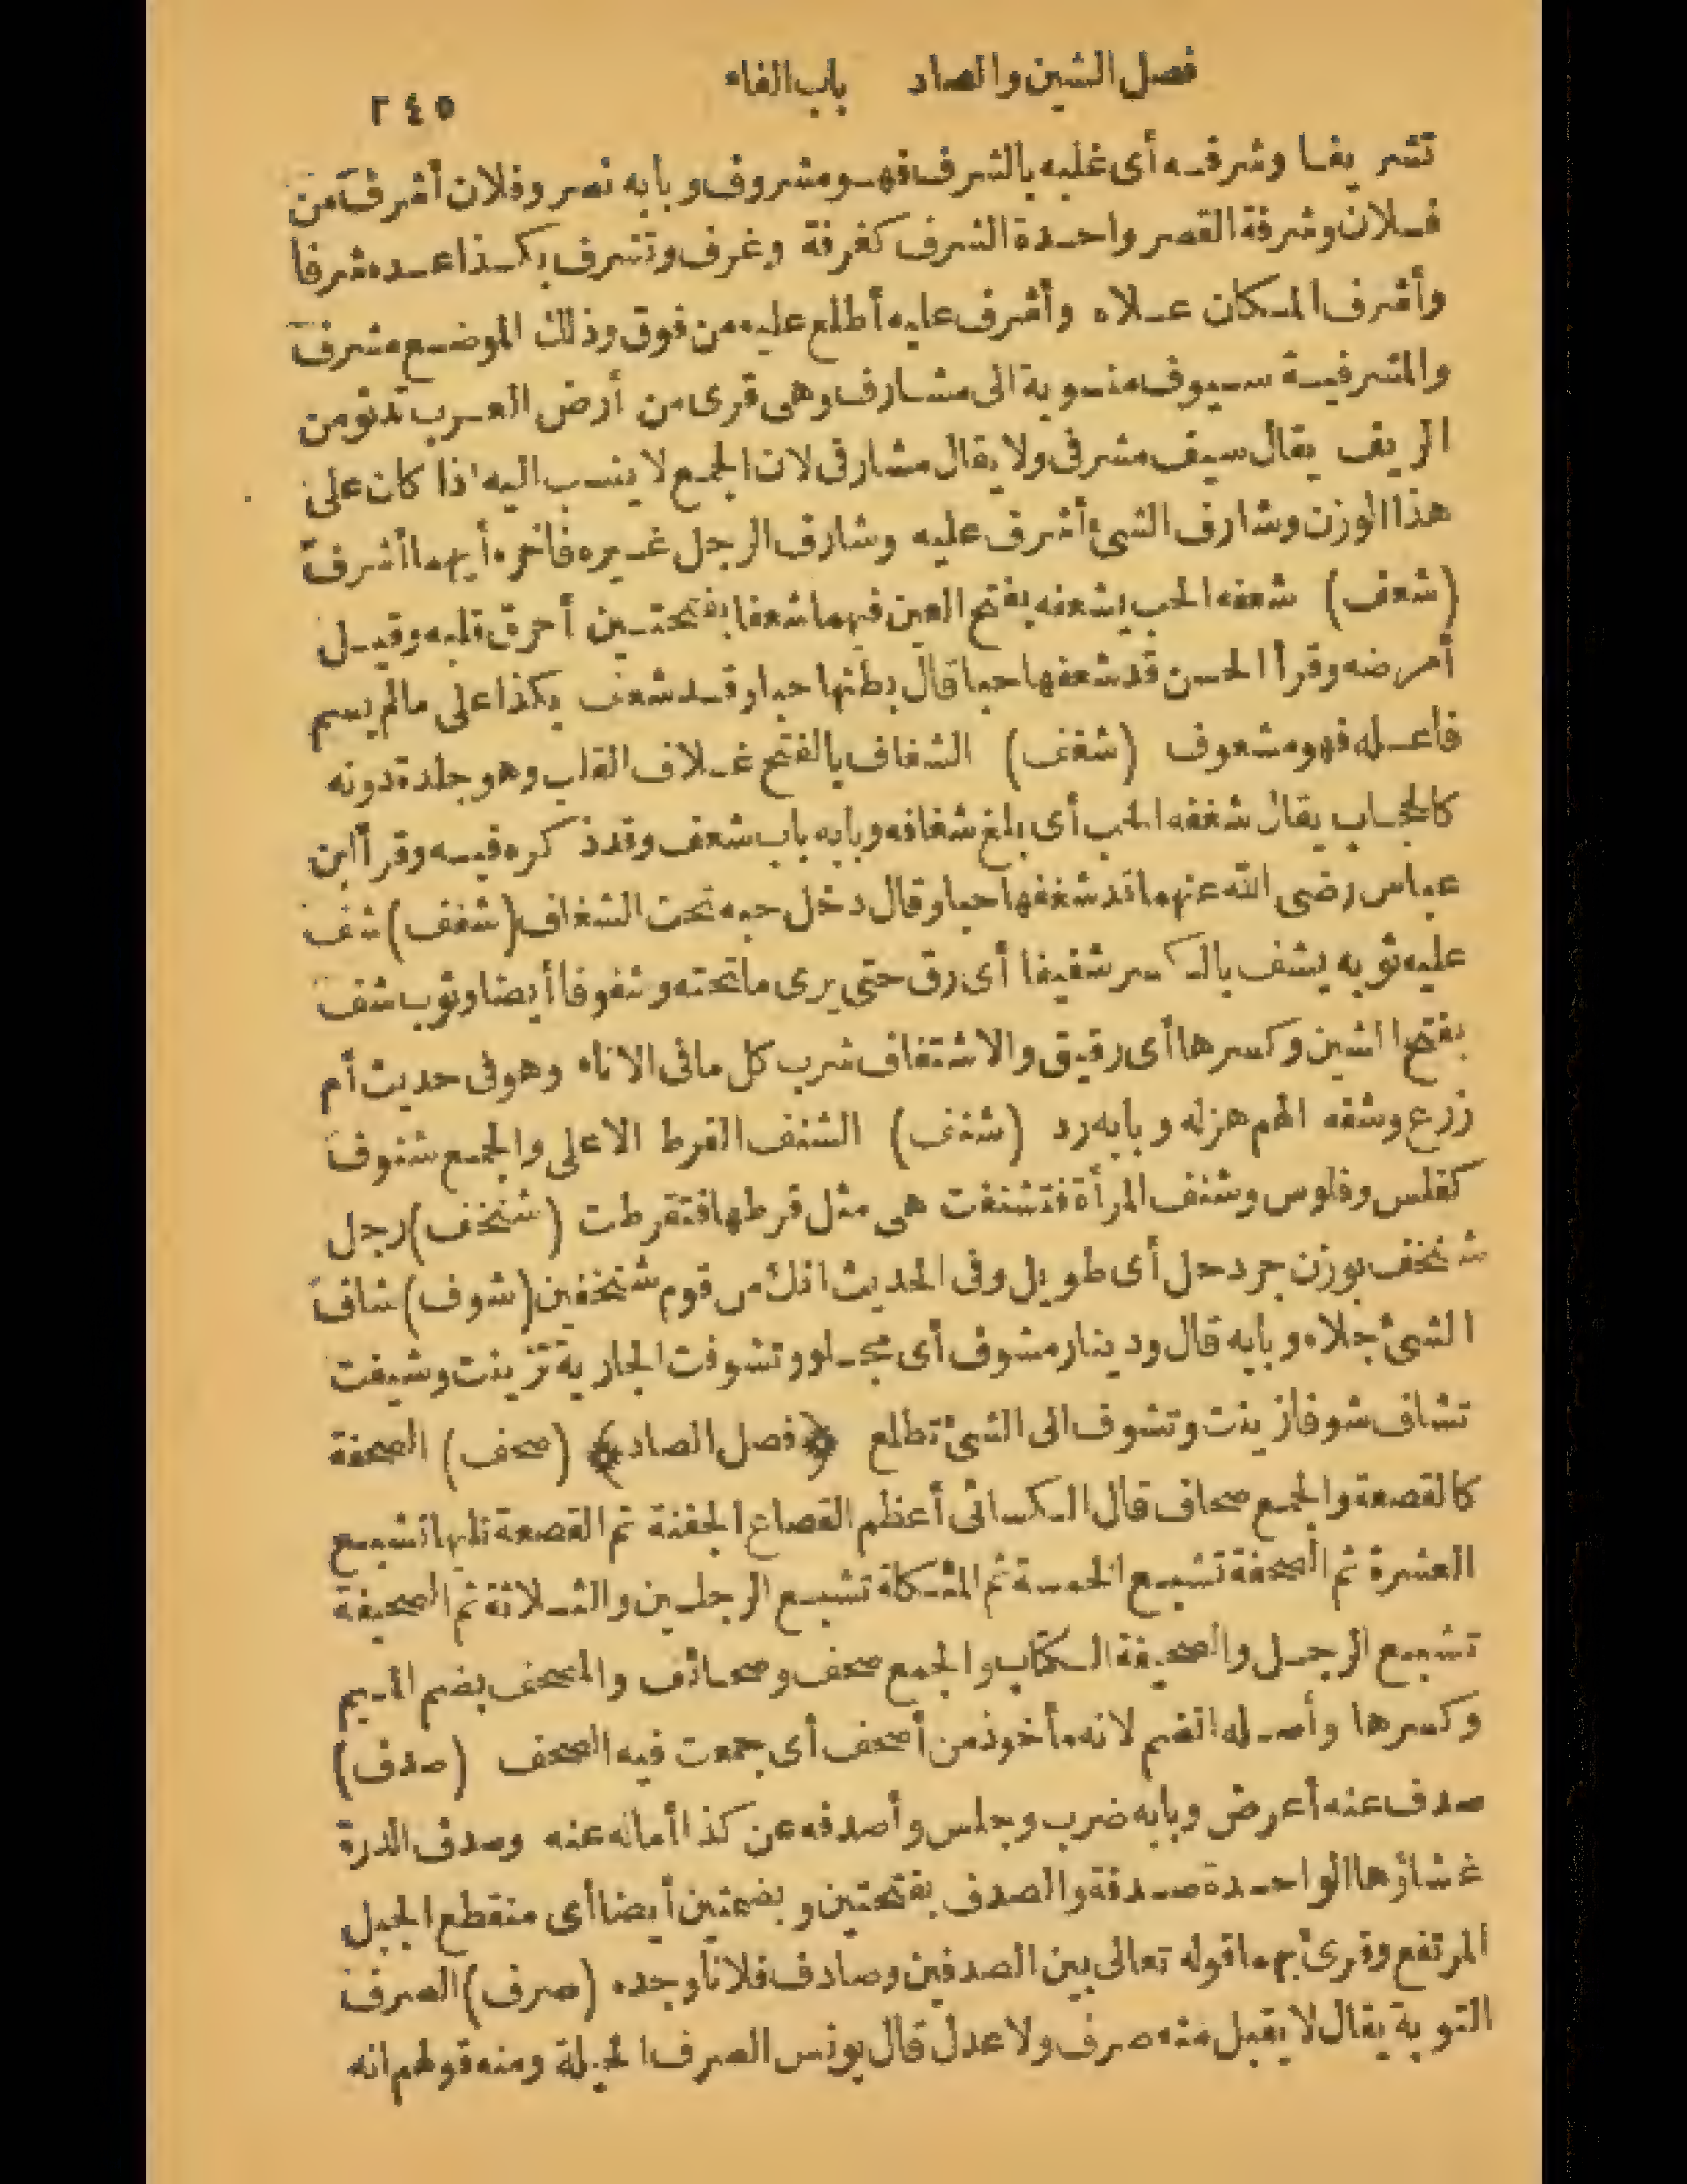 فصل الشين والصاد باب الفاء
٢٤٥
تشريفا وشرفه أى غلبه بالشرف فهو مشروف وبابه نصر وفلان أشرف من
فلان وشرفة القصر واحدة الشرف كغرفة وغرف وتشرف بكذا عده شرفا
وأشرف المكان علاه وأشرف عليه أطلع عليه من فوق وذلك الموضع مشرف
والمشرفية سيوف منسوبة الى مشارف وهى قرى من أرض العرب تدنو من
الريف يقال سيف مشرفى ولا يقال مشارفى لان الجمع لا ينسب اليه اذا كان على
هذا الوزن وشارف الشئ أشرف عليه وشارف الرجل غيره فاخره أيهما أشرف
(شعف) شعفه الحب يشعفه بفتح العين فيهما شعفا بفتحتين أحرق قلبه وقيل
أمرضه وقرأ الحسن قد شعفها حبا قال بطنها حبا وقد شعف بكذا على مالم يسم
فاعله فهو مشعوف (شغف) الشغاف بالفتح غلاف القلب وهو جلدة دونه
كالحجاب يقال شغفه الحب أى بلغ شغافه وبابه باب شعف وقد ذكره فيه وقرأ ابن
عباس رضى الله عنهما قد شغفها حبا وقال دخل حبه تحت الشغاف (شفف) شف
عليه ثوبه يشف بالكسر شفيفا أى رق حتى يرى ما تحته وشفوفا أيضا وثوب شف
بفتح الشين وكسرها أى رقيق والاشتفاف شرب كل ما فى الاناء وهو فى حديث أم
زرع وشفه الهم هزله وبابه رد (شنف) الشنف القرط الاعلى والجمع شنوف
كفلس وفلوس وشنف المرأة فتشنفت هى مثل قرطها فتقرطت (شنخف) رجل
شنخف بوزن جردحل أى طويل وفى الحديث انك من قوم شنخفين (شوف) شاف
الشئ جلاه وبابه قال ودينار مشوف أى مجلو وتشوفت الجارية تزينت وشيفت
تشاف شوفا زينت وتشوف الى الشئ تطلع ﴿فصل الصاد﴾ (صحف) الصحفة
كالقصعة والجمع صحاف قال الكسائى أعظم القصاع الجفنة ثم القصعة تليها تشبع
العشرة ثم الصحفة تشبع الخمسة ثم المئكلة تشبع الرجلين والثلاثة ثم الصحيفة
تشبع الرجل والصحيفة الكتاب والجمع صحف وصحائف والمصحف بضم الميم
وكسرها وأصله الضم لانه مأخوذ من أصحف أى جمعت فيه الصحف (صدف)
صدف عنه أعرض وبابه ضرب وجلس وأصدفه عن كذا أماله عنه وصدف الدرة
غشاؤها الواحدة صدفة والصدف بفتحتين وبضمتين أيضا أى منقطع الجبل
المرتفع وقرئ بهما قوله تعالى بين الصدفين وصادف فلانا وجده (صرف) الصرف
التوبة يقال لا يقبل منه صرف ولا عدل قال يونس الصرف الحيلة ومنه قولهم انه